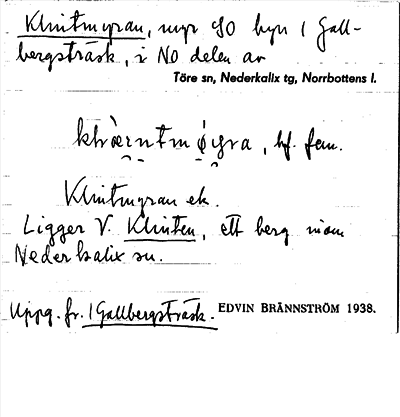 Klintmyran, myr SO byn I Gall-
bergsträsk, i NO delen av
Töre sn, Nederkalix tg, Norrbottens l.
bf. fem.
Klintmyran ek.
Ligger V. Klinten, ett berg inom
Nederkalix sn.
Uppg. fr. I Gallbergsträsk. EDVIN BRÄNNSTRÖM 1938.